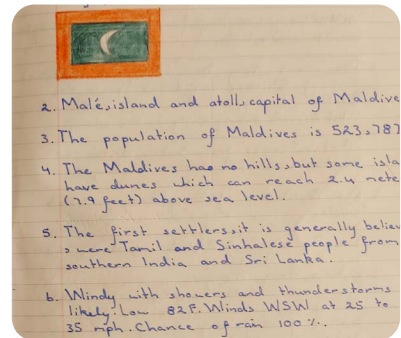 2. Malé, island and atoll, capital of Maldive
3. The population of Maldives is 523,787
4. The Maldives has no hills, but some isla
have dunes which can reach 2.4 mete
(7.9 feet) above sea level.
5. The first settlers, it is generally believ
, were Tamil and Sinhalese people from
southern India and Sri Lanka.
6. Windy with showers and thunderstorms
likely. Low 82F. Winds WSW at 25 to
35 mph. Chance of rain 100%.